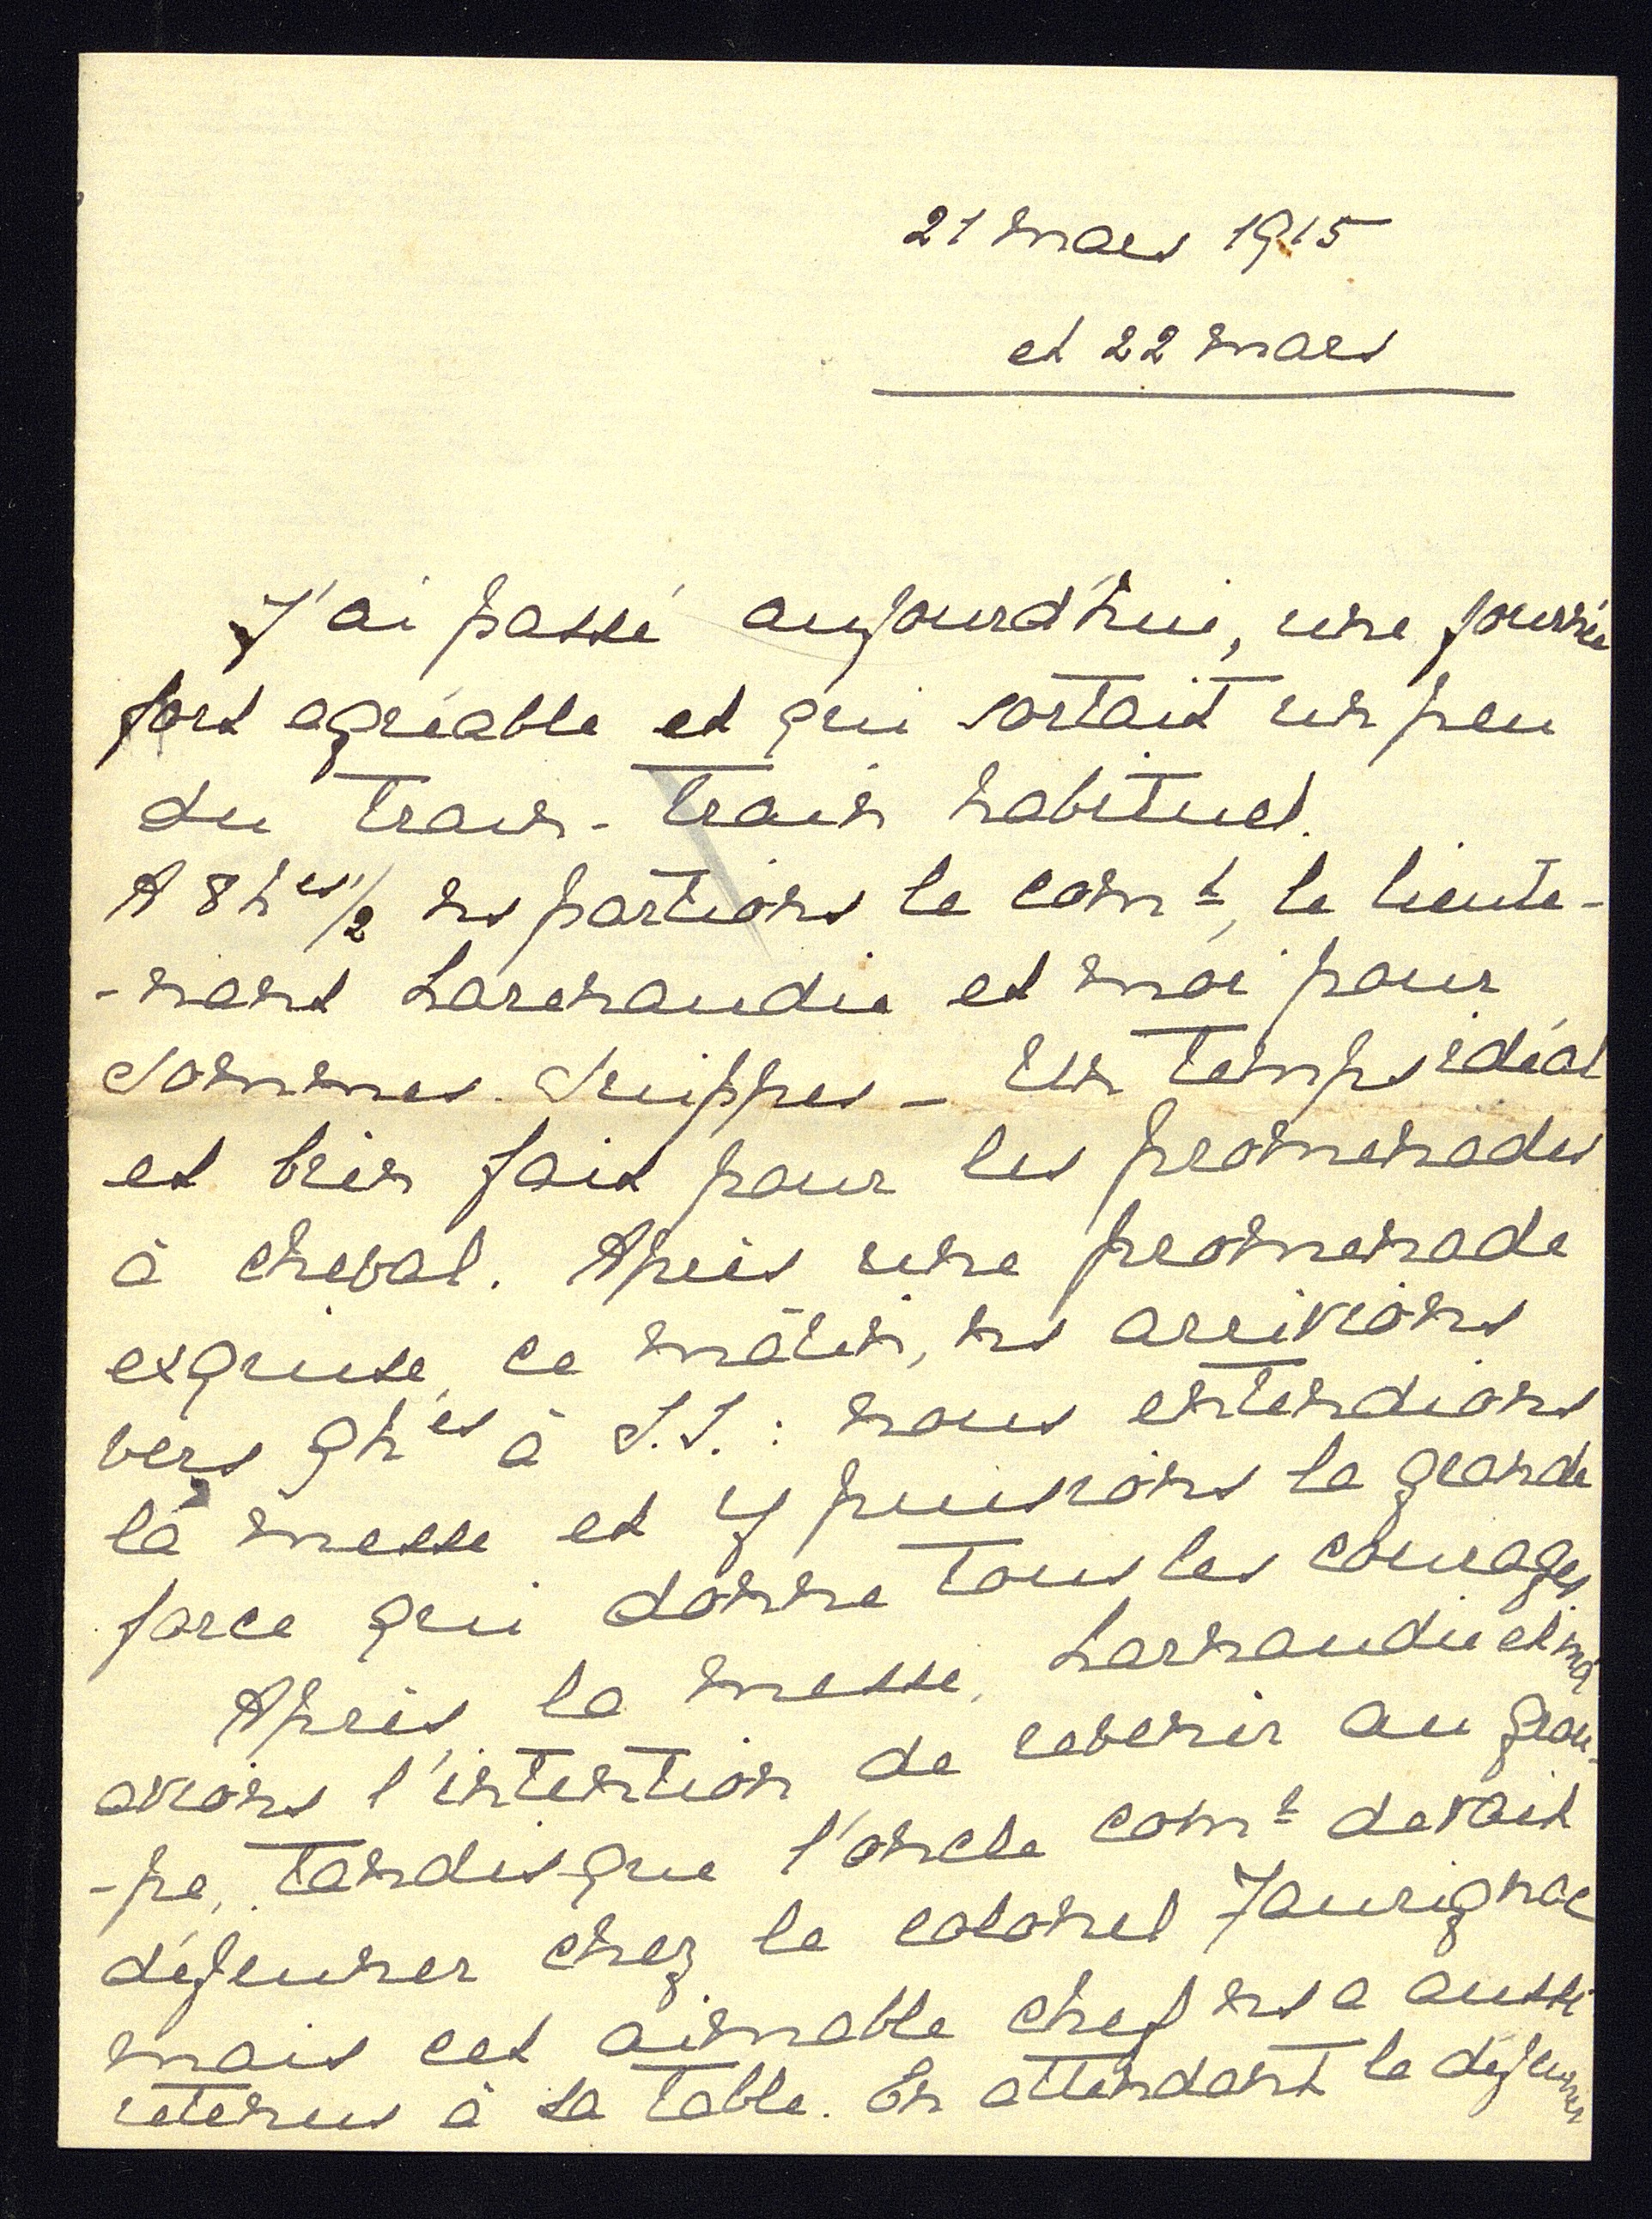 21 mars 1915
et 22 mars
J'ai passé aujourd'hui, une journée
fort agréable et qui sortait un peu
du train-train habituel.
A 8 hes 1/2 ns partions le comt, le lieute-
-nant Larenaudie et moi pour
Sommes-Suippes - Un temps idéal
et bien fait pour les promenades
à cheval. Après une promenade
exquise, ce matin, ns arrivions
vers 9 hes à S.S. : nous entendions
la messe et y puisions la grande
force qui donne tous les courages.
Après, la messe, Larnaudie et moi
avions l'intention de revenir au grou-
-pe, tandis que l'oncle comt devait
déjeuner chez le colonel Jaurignac
mais cet aimable chef ns a aussi
retenus à sa table. En attendant le déjeuner